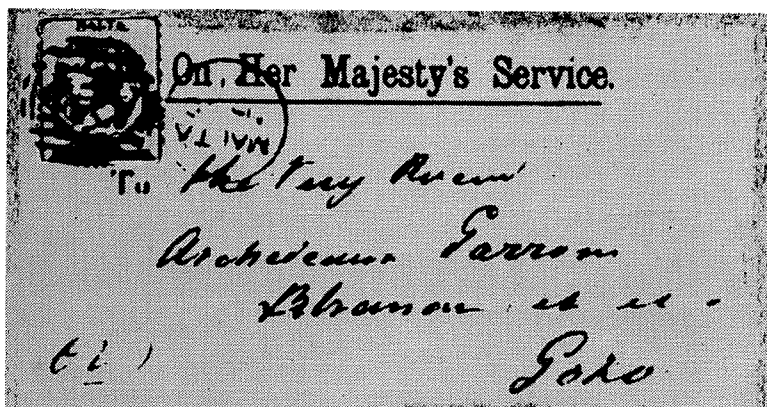 MALTA
On Her Majesty's Service.
MALTA
To the Very Revnd
Archdeacon
&c &c.
Gozo
(i)